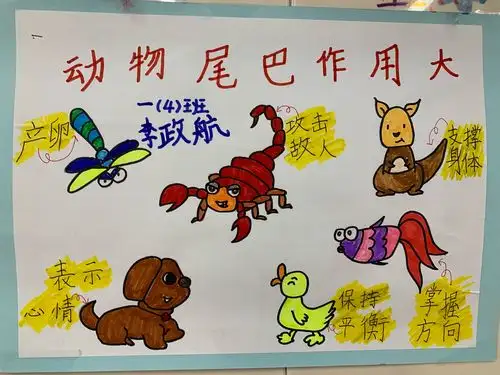 动物尾巴作用大
一(4)班
李政航
产卵
攻击
敌人
支撑
身体
表示
心情
保持
平衡
掌握
方向